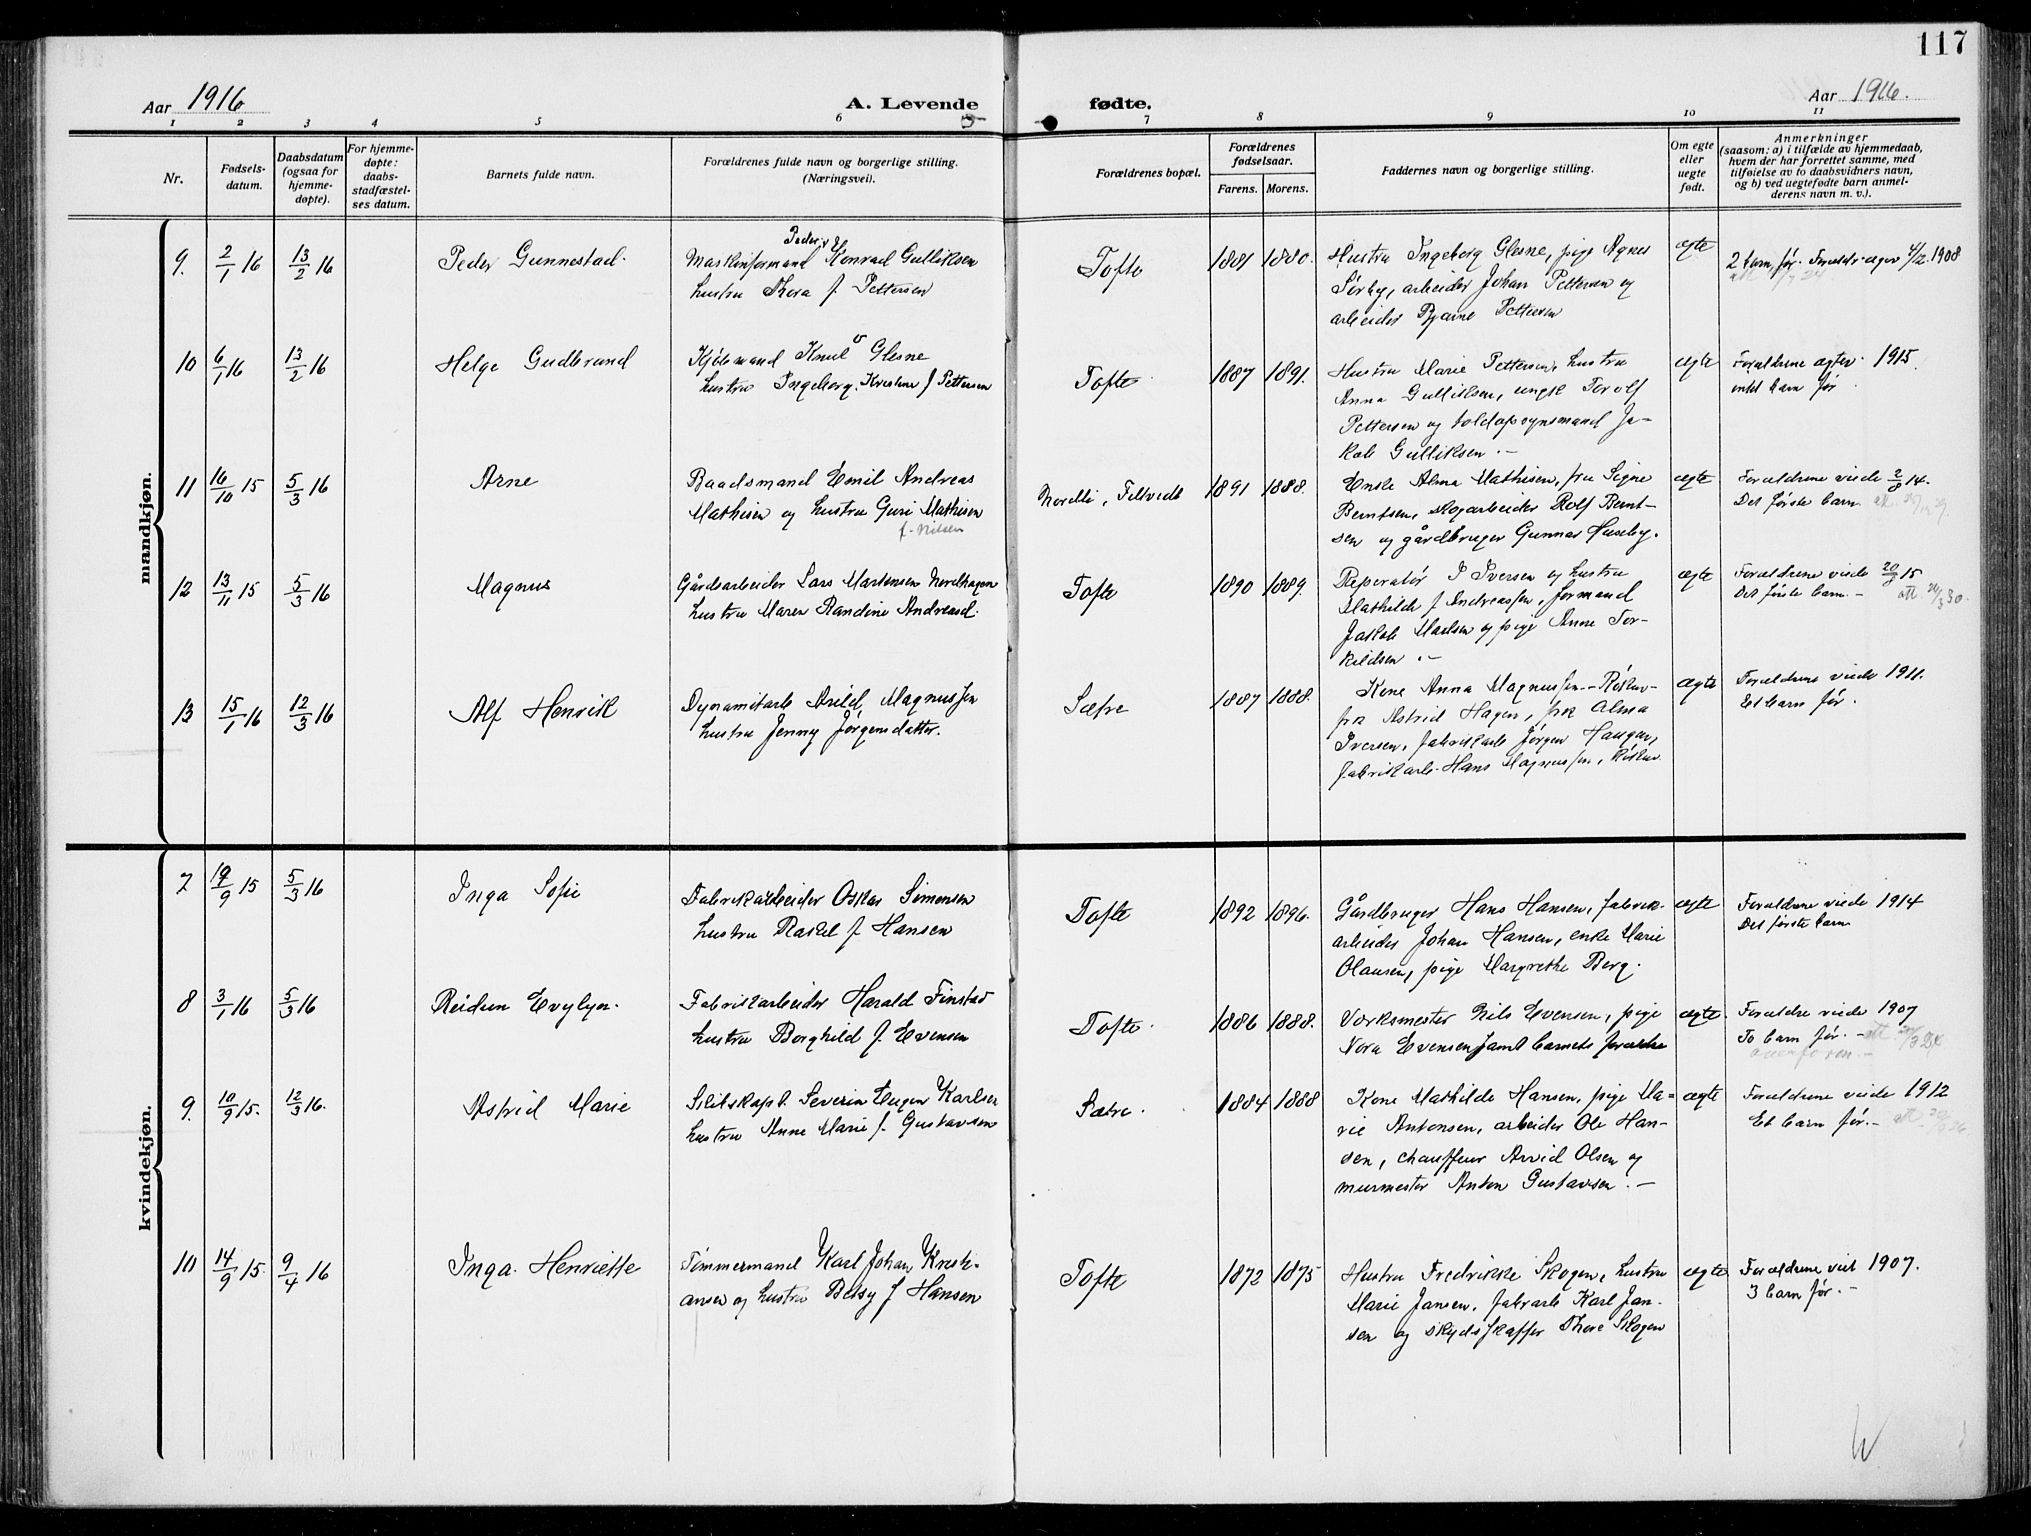 117
Aar 1916
A. Levende
fødte.
Aar 1916.
1 2 3 4 5 6 7 8 9 10 11
Nr.
Fødsels-
datum.
Daabsdatum
(ogsaa for
hjemme-
døpte).
For hjemme-
døpte:
daabs-
stadfæstel-
ses datum.
Barnets fulde navn.
Forældrenes fulde navn og borgerlige stilling.
(Næringsvei).
Forældrenes bopæl.
Forældrenes
fødselsaar.
Farens. Morens.
Faddernes navn og borgerlige stilling.
Om egte
eller
uegte
født.
Anmerkninger
(saasom: a) i tilfælde av hjemmedaab,
hvem der har forrettet samme, med
tilføielse av to daabsvidners navn,
og b) ved uegtefødte barn anmel-
derens navn m. v.).
mandkjøn.
9. 2/1 16 13/2 16 Peder Gunnestad.
Peder
Maskinformand Konrad Gulliksen
hustru Thora f Pettersen
Tofte 1881 1880.
Hustru Ingeborg Glesne, pige Agnes
Sørby, arbeider Johan Pettersen og
arbeider Bjarne Pettersen
ægte
2 barn før. Forældr ægev 4/2 1908
10 6/1 16 13/2 16 Helge Gudbrand
Kjøbmand Knut Glesne
hustru Ingeborg Kristine f Pettersen
Tofte 1887 1891.
Hustru Marie Pettersen, hustru
Anna Gulliksen, ungk Torolf
Pettersen og toldopsynsmand Ja-
kob Gulliksen.-
ægte
Forældrene ægtev. 1915
intet barn før
11 16/10 15 5/3 16 Arne
Baadsmand Emil Andreas
Mathisen og hustru Guri Mathisen
f. Nilsen
Nordli, Filtvedt 1891 1888.
Enke Alma Mathisen, fru Signe
Berntsen, skogarbeider Rolf Bernt-
sen og gårdbruger Gunnar Huseby.
ægte
Forældrene viede 2/8 14.
Det første barn
12 13/11 15 5/3 16 Magnus
Gårdsarbeider Lars Martensen Nordhagen
hustru Maren Randine Andreasd.
Tofte 1890 1889.
Reperatør I Iversen og hustru
Mathilde f Andreassen, formand
Jakob Marlsen og pige Anne Tor-
kildsen.-
ægte
Forældrene viede 20/8 15
Det første barn.- att. 24/3 30.
13 15/1 16 12/3 16 Alf Henrik
Dynamitarb Arild Magnussen
hustru Jenny Jørgensdatter.
Sætre 1887 1888.
Kone Anna Magnussen - Røsku-
frk Astrid Hagen, frk Alma
Iversen, fabrikarb Jørgen Haugen,
fabrikarb. Hans Magnussen, Røskw
ægte
Forældrene viede 1911.
Et barn før.
kvindekjøn.
7 19/9 15 5/3 16 Inga Sofie
Fabrikarbeider Oskar Simensen
hustru Rakel f Hansen
Tofte 1892 1896.
Gårdbruger Hans Hansen, fabrik-
arbeider Johan Hansen, enke Marie
Olausen, pige Margrethe Berg.
ægte
Forældrene viede 1914
Det første barn
8 3/1 16 5/3 16 Reidun Evylyn.
Fabrikarbeider Harald Finstad
hustru Borghild f. Evensen
Tofte. 1886 1888.
Værksmester Nils Evensen, pige
Nora Evensen samt barnets forældre
ægte.
Forældre viede 1907
To barn før.-
9. 10/9 15. 12/3 16. Astrid Marie
Skibskapt. Severin Eugen Karlsen
hustru Anne Marie f. Gustavsen
Sætre. 1884 1888
Kone Mathilde Hansen, pige Ma-
rie Antonsen, arbeider Ole Han-
sen, chauffeur Arvid Olsen og
murmester Anton Gustavsen.-
ægte
Forældrene viede 1912
Et barn før.-
10 14/9 15. 9/4 16 Inga. Henriette
Tømmermand Karl Johan Kristi-
ansen og hustru Betsy f Hansen
Tofte 1872 1875
Hustru Fredrikke Skogen, hustru
Marie Jansen, fabrarb Karl Jan-
sen og skydsskaffer Thore Skogen
ægte.
Forældrene viet 1907.
3 barn før.-